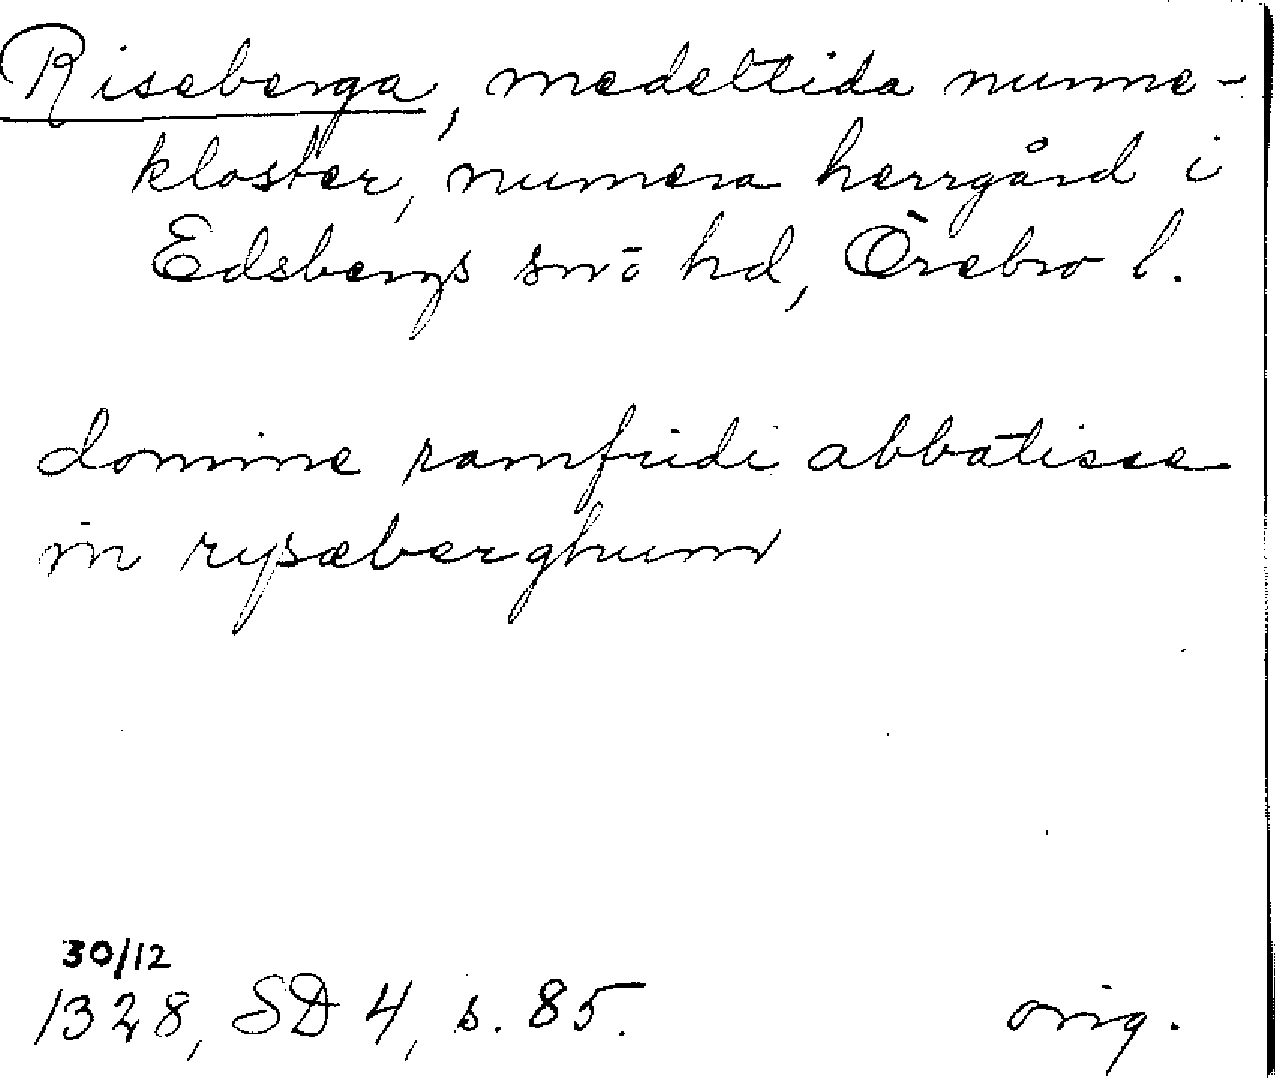 Riseberga, medeltida nunne-
kloster, numera herrgård i
Edsbergs snö hd, Örebro l.
domine ramfridi abbatisse
in rysæberghum
30/12
1328, SD 4, s. 85. orig.